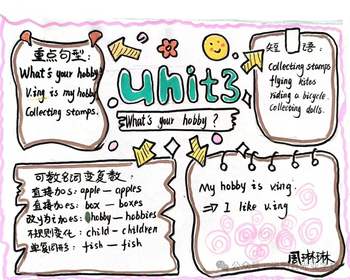 重点句型:
What's your hobby?
V.ing is my hobby.
Collecting stamps.
unit3
What's your hobby?
短语:
Collecting stamps
flying kites
riding a bicycle.
collecting dolls.
可数名词变复数:
直接加s: apple — apples
直接加es: box — boxes
改y为i加es: hobby — hobbies
不规则变化: child — children
单复同形: fish — fish
My hobby is ving.
⇒ I like v.ing
周琳琳